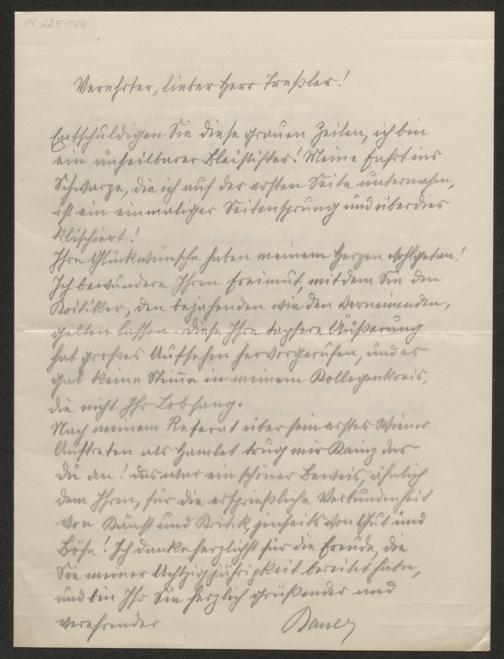 IN 225044
Verehrter, lieber Herr Treßler!
Entschuldigen Sie diese grauen Zeilen, ich bin
ein unheilbarer Bleistiftler! Meine Fahrt ins
Schwarze, die ich auf der ersten Seite unternahm,
ist ein einmaliger Seitensprung und überdies
klischiert!
Ihre Glückwünsche haben meinem Herzen wohlgetan!
Ich bewundere Ihren Freimut, mit dem Sie den
Kritiker, den bejahenden wie den verneinenden,
gelten lassen. Diese Ihre tapfere Äußerung
hat großes Aufsehen hervorgerufen, und es
gab keine Stimme in meinem Kollegenkreis,
die nicht Ihr Lob sang.
Nach meinem Referat über sein erstes Wiener
Auftreten als Hamlet trug mir Kainz das
Du an! Das war ein schöner Beweis, ähnlich
dem Ihren, für die ersprießliche Verbundenheit
von Kunst und Kritik, jenseits von Gut und
Böse! Ich danke herzlichst für die Freude, die
Sie meiner Achtzigjährigkeit bereitet haben,
und bin Ihr Sie herzlich grüßender und
verehrender